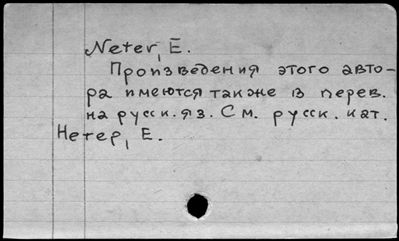 Neter, E.
Произведения этого авто-
ра имеются также в перев.
на русск. яз. См. русск. кат.
Нетер, Е.